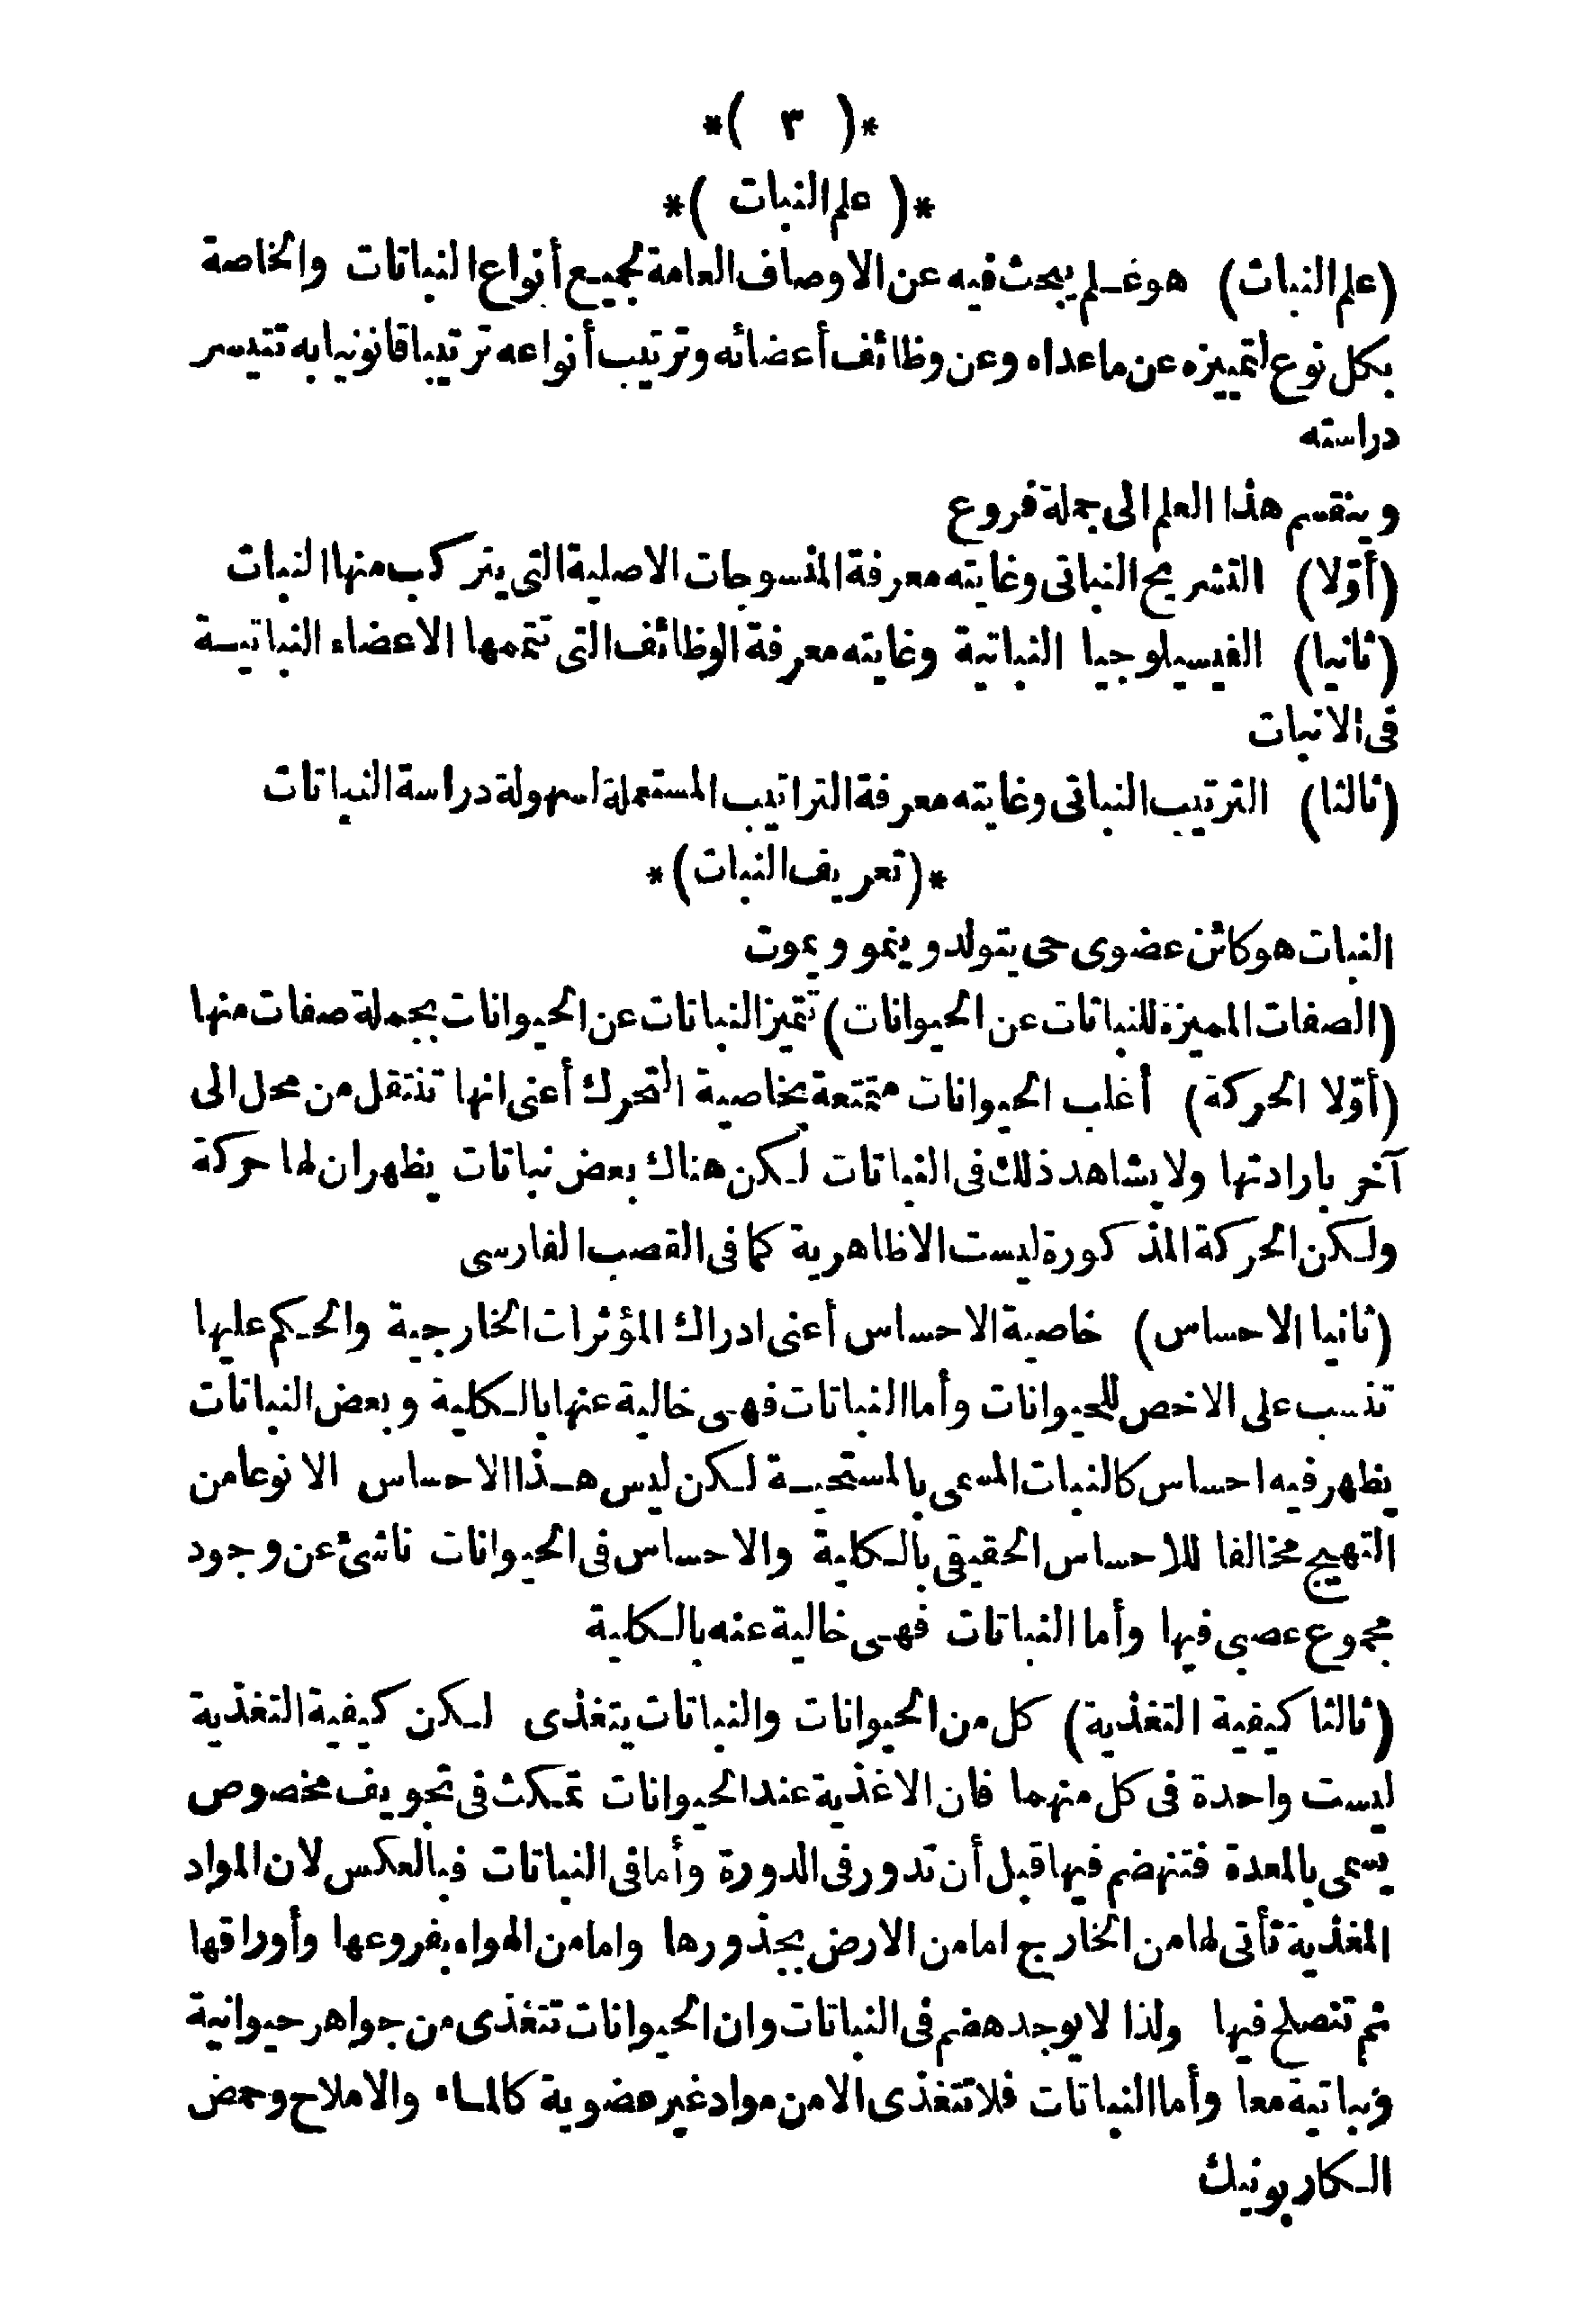 *( ٣ )*
*( علم النبات )*
(علم النبات) هو علم يبحث فيه عن الاوصاف العامة لجميع أنواع النباتات والخاصة
بكل نوع لتمييزه عن ماعداه وعن وظائف أعضائه وترتيب أنواعه ترتيبا قانونيا به تتيسر
دراسته
وينقسم هذا العلم الى جملة فروع
(أوّلا) التشريح النباتى وغايته معرفة المنسوجات الاصلية التى يتركب منها النبات
(ثانيا) الفيسيلوجيا النباتية وغايته معرفة الوظائف التى تتممها الاعضاء النباتية
فى الانبات
(ثالثا) الترتيب النباتى وغايته معرفة التراتيب المستعملة لسهولة دراسة النباتات
*(تعريف النبات)*
النبات هو كائن عضوى حى يتولد وينمو ويموت
(الصفات المميزة للنباتات عن الحيوانات) تتميز النباتات عن الحيوانات بجملة صفات منها
(أوّلا الحركة) أغلب الحيوانات متمتعة بخاصية التحرك أعنى انها تنتقل من محل الى
آخر بارادتها ولا يشاهد ذلك فى النباتات لكن هناك بعض نباتات يظهر ان لها حركة
ولكن الحركة المذكورة ليست الا ظاهرية كما فى القصب الفارسى
(ثانيا الاحساس) خاصية الاحساس أعنى ادراك المؤثرات الخارجية والحكم عليها
تنسب على الاخص للحيوانات وأما النباتات فهى خالية عنها بالكلية وبعض النباتات
يظهر فيه احساس كالنبات المسمى بالمستحية لكن ليس هذا الاحساس الا نوعا من
التهيج مخالفا للاحساس الحقيقى بالكلية والاحساس فى الحيوانات ناشئ عن وجود
مجموع عصبى فيها وأما النباتات فهى خالية عنه بالكلية
(ثالثا كيفية التغذية) كل من الحيوانات والنباتات يتغذى لكن كيفية التغذية
ليست واحدة فى كل منهما فان الاغذية عند الحيوانات تمكث فى تجويف مخصوص
يسمى بالمعدة فتنهضم فيها قبل أن تدور فى الدورة وأما فى النباتات فبالعكس لان المواد
المغذية تأتى لها من الخارج اما من الارض بجذورها واما من الهواء بفروعها وأوراقها
ثم تنصلح فيها ولذا لا يوجد هضم فى النباتات وان الحيوانات تتغذى من جواهر حيوانية
ونباتية معا وأما النباتات فلا تتغذى الا من مواد غير عضوية كالماء والاملاح وحمض
الكاربونيك